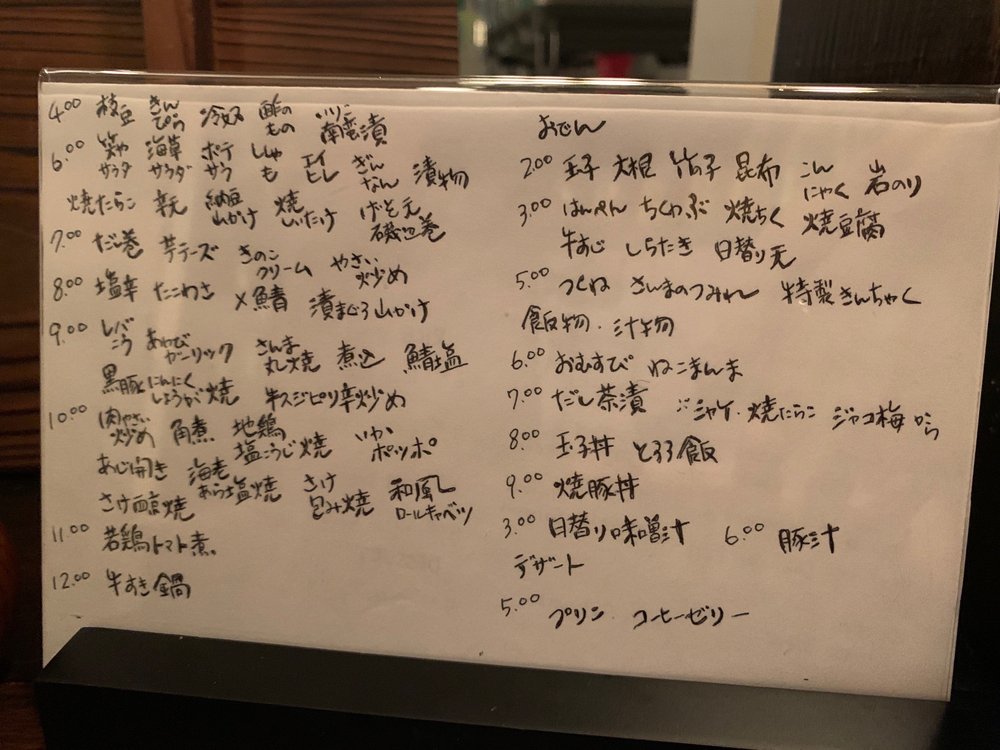 4.00 枝豆 きんぴら 冷奴 酢のもの 南蛮漬
6.00 サラダ 海草サラダ ポテサラ ししゃも エイヒレ ぎんなん 漬物
焼たらこ 納豆山かけ 焼しいたけ 磯辺巻
7.00 だし巻 芋チーズ きのこクリーム やさい炒め
8.00 塩辛 たこわさ 〆鯖 漬まぐろ山かけ
9.00 レバこう あわびガーリック さんま丸焼 煮込 鯖塩
黒豚にんにくしょうが焼 牛スジピリ辛炒め
10.00 肉やさい炒め 角煮 地鶏塩こうじ焼 いかポッポ
あじ開き 海老あら塩焼 さけ包み焼 和風ロールキャベツ
さけ西京焼
11.00 若鶏トマト煮
12.00 牛すき鍋
おでん
2.00 玉子 大根 竹の子 昆布 こんにゃく 岩のり
3.00 はんぺん ちくわぶ 焼ちく 焼豆腐
牛すじ しらたき 日替り
5.00 つくね さんまのつみれ 特製きんちゃく
飯物・汁物
6.00 おむすび ねこまんま
7.00 だし茶漬 シャケ・焼たらこ ジャコ梅
8.00 玉子丼 とろろ飯
9.00 焼豚丼
3.00 日替り味噌汁 6.00 豚汁
デザート
5.00 プリン コーヒーゼリー